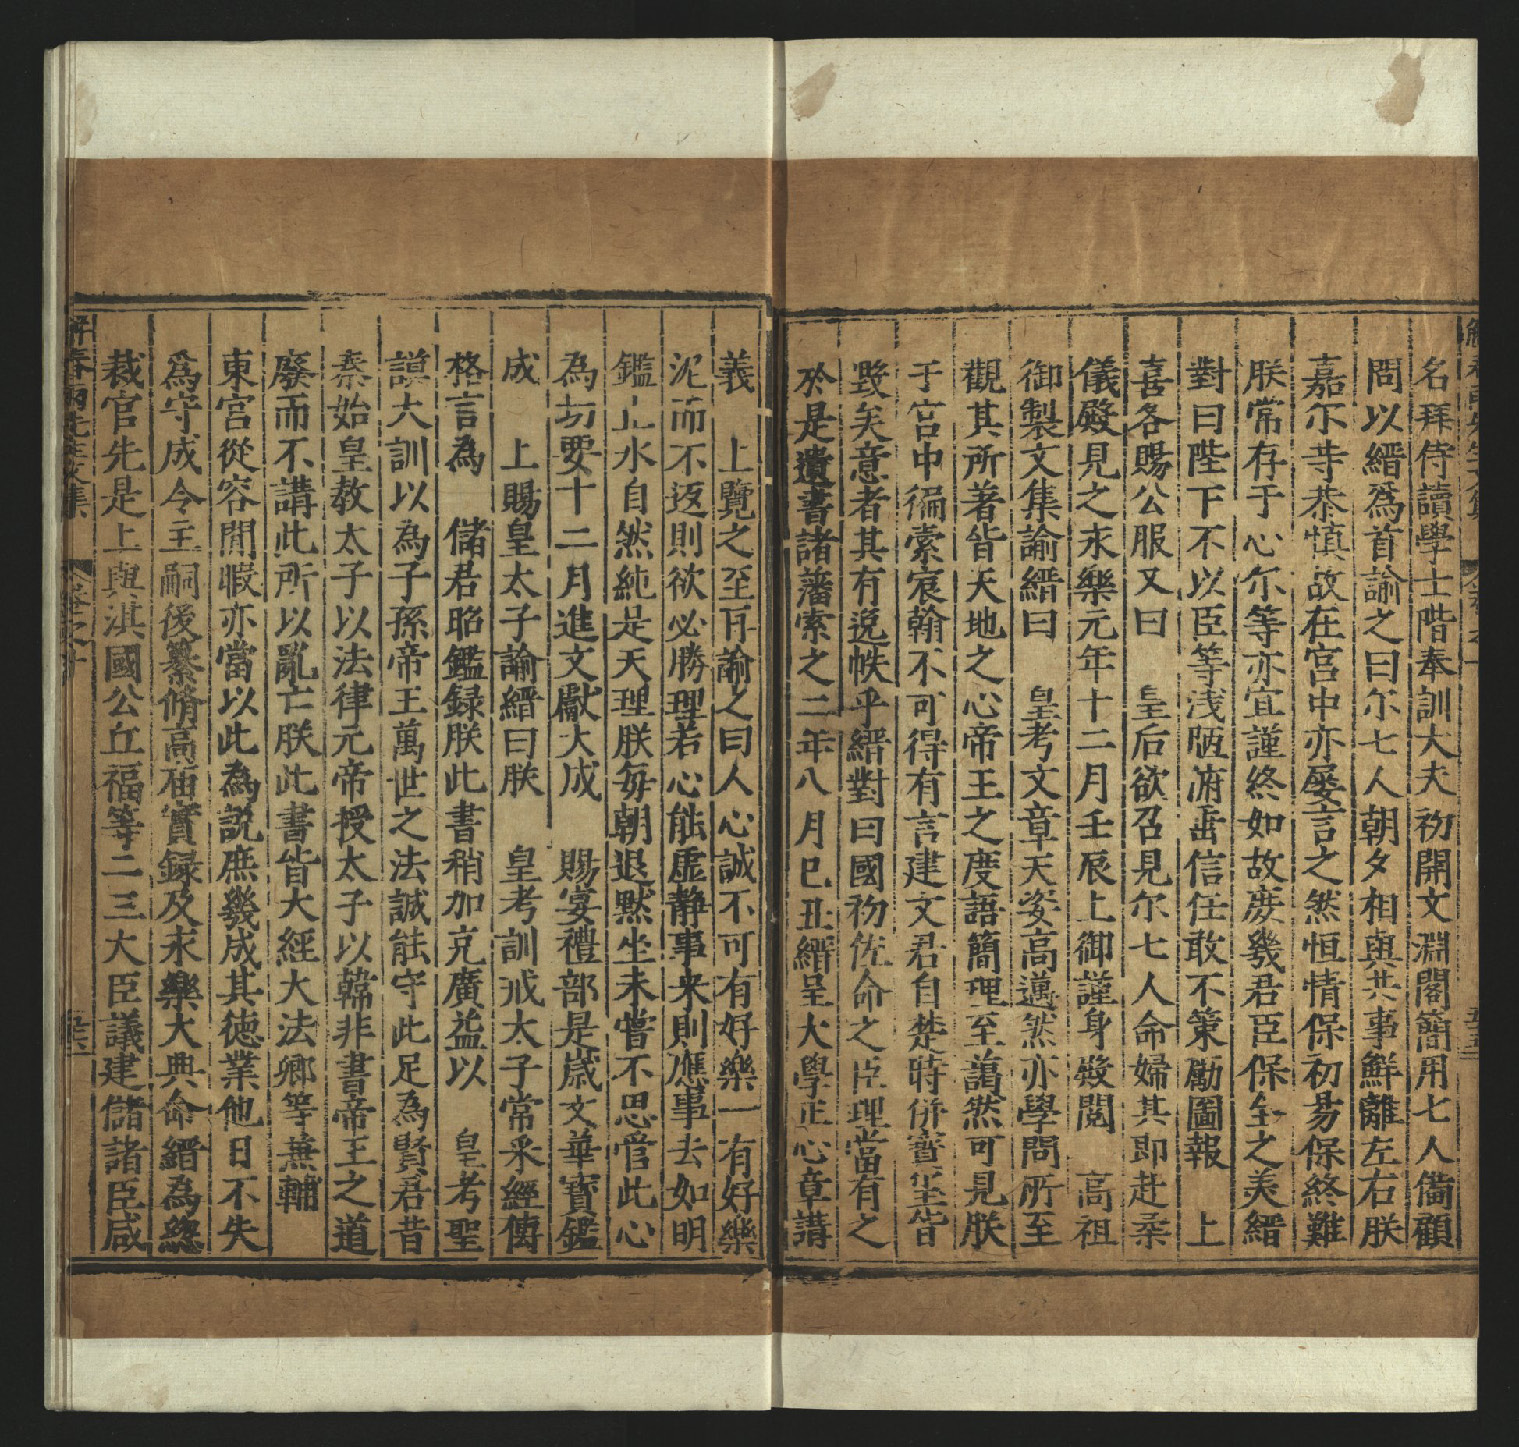 名拜侍讀學士階奉訓大夫初開文淵閣簡用七人備顧
問以縉爲首諭之曰尔七人朝夕相與共事鮮離左右朕
嘉尓等恭慎故在宮中亦屡言之然恒情保初易保終難
朕常存于心尔等亦宜謹終如故庻幾君臣保全之美縉
對曰陛下不以臣等浅陋俯垂信任敢不策勵圖報　上
喜各賜公服又曰　皇后欲召見尔七人命婦其即赴柔
儀殿見之永樂元年十二月壬辰上御謹身殿閱　高祖
御製文集諭縉曰　皇考文章天姿高邁然亦學問所至
觀其所著皆天地之心帝王之度語簡理至藹然可見朕
于宮中徧索宸翰不可得有言建文君自楚時併寳璽皆
毀矣意者其有逸帙乎縉對曰國初佐命之臣理當有之
於是遺書諸藩索之二年八月巳丑縉呈大學正心章講
義　上覽之至再諭之曰人心誠不可有好樂一有好樂
泥而不返則欲必勝理若心能虛静事来則應事去如明
鑑止水自然純是天理朕毎朝退默坐未嘗不思管此心
為切要十二月進文獻大成　賜宴禮部是歳文華寳鑑
成　上賜皇太子諭縉曰朕　皇考訓戒太子常采經傳
格言為　儲君昭鑑録朕此書稍加充廣益以　皇考聖
謨大訓以為子孫帝王萬世之法誠能守此足為賢君昔
秦始皇教太子以法律元帝授太子以韓非書帝王之道
廢而不講此所以亂亡朕此書皆大經大法卿等兼輔
東宮從容閒暇亦當以此為説庶幾成其徳業他日不失
爲守成令主嗣後纂脩高庙實録及永樂大典命縉為總
裁官先是上與淇國公丘福等二三大臣議建儲諸臣咸
解春雨先生文集